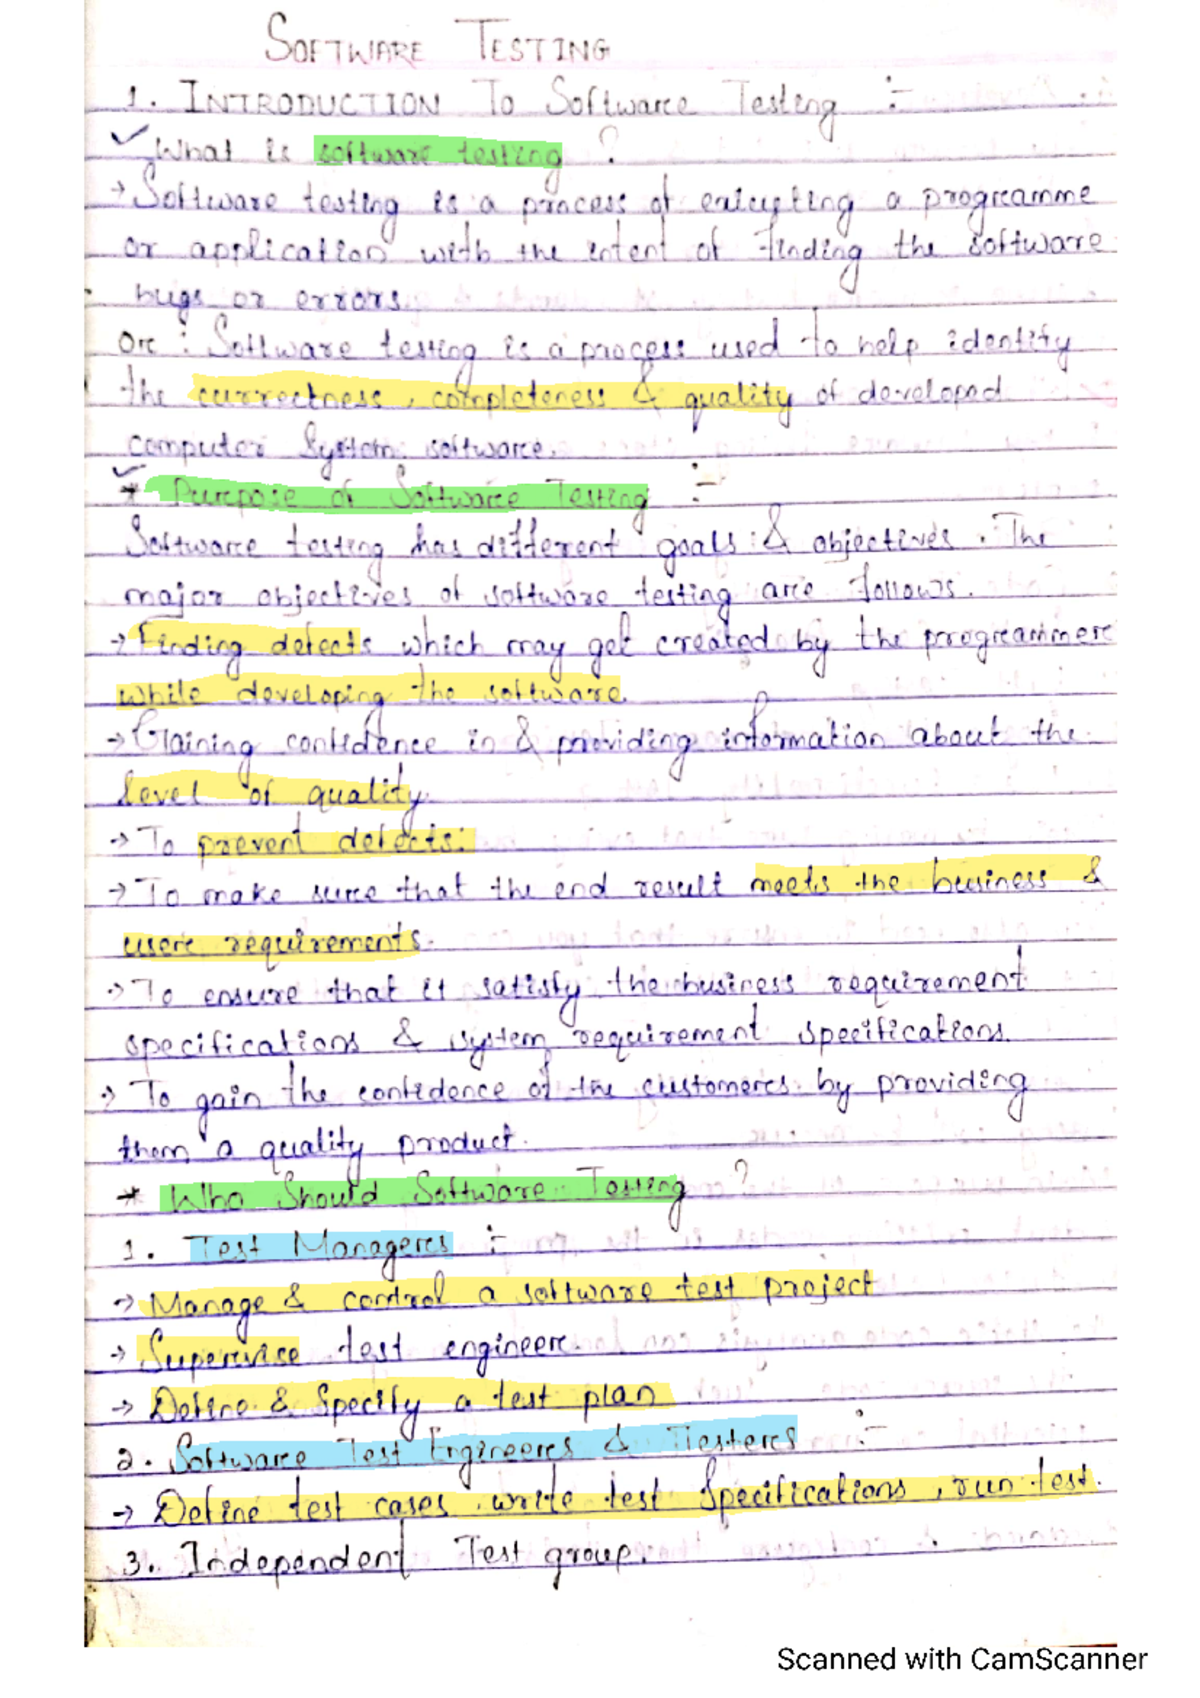 SOFTWARE TESTING
1. INTRODUCTION To Software Testing :-
What is software testing ?
→ Software testing is a process of a programme
or application with the intent of finding the software
bugs or errors.
Or : Software testing is a process used to help identify
the currectness, completeness & quality of developed
computer System software.
* Purpose of Software Testing :-
Software testing has different goals & objectives. The
major objectives of software testing are follows.
→ Finding defects which may get created by the programmer
while developing the software.
→ Gaining confidence in & providing information about the
level of quality.
→ To prevent defects.
→ To make sure that the end result meets the business &
user requirements.
→ To ensure that it satisfy the business requirement
specifications & system requirement specifications.
→ To gain the confidence of the customers by providing
them a quality product.
* Who Should Software Testing ?
1. Test Managers :-
→ Manage & control a software test project
→ Supervise test engineer.
→ Define & Specify a test plan
2. Software Test Engineers & Testers :-
→ Define test cases, write test Specifications, run test.
3. Independent Test group.
Scanned with CamScanner